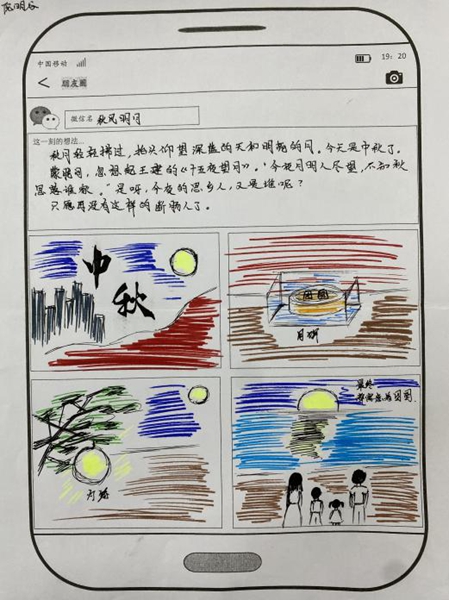 中国移动 19:20
< 朋友圈
微信名 秋风明月
这一刻的想法...
秋风轻轻拂过，抬头仰望深蓝的天和明的月。今天是中秋了。
蒙眬间，忽想起王建的《十五夜望月》。“今夜月明人尽望，不知秋
思落谁家。”是呀，今夜的思乡人，又是谁呢？
只愿再没有这样的断肠人了。
中
秋
团圆
月饼
最终
团圆